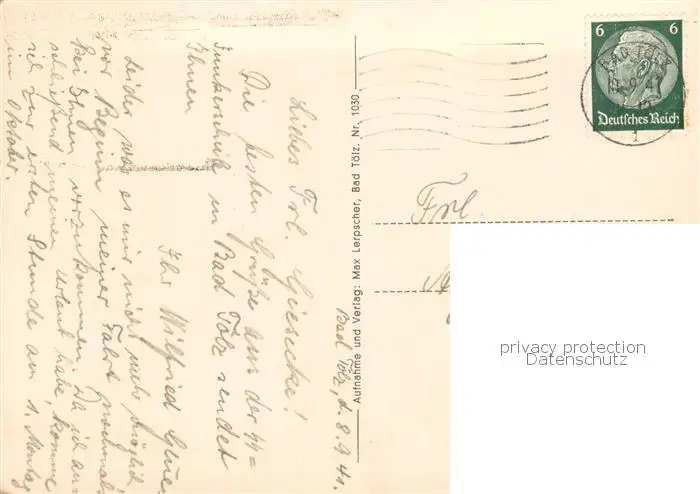 Bad Tölz, d. 8.9.41.
Liebes Frl. Giesecke!
Die besten Grüße aus der SS=
Junkerschule in Bad Tölz sendet
Ihnen
Ihr Wilfried
Leider war es mir nicht mehr möglich
vor Beginn meiner Fahrt nochmal
bei Ihnen vorzukommen. Da ich an-
schließend meinen Urlaub habe, komme
ich zur ersten Stunde am 1. Montag
im Oktober.
Aufnahme und Verlag: Max Lerpscher, Bad Tölz. Nr. 1030
6 6
Deutsches Reich
BAD TÖLZ
1
Frl.
privacy protection
Datenschutz